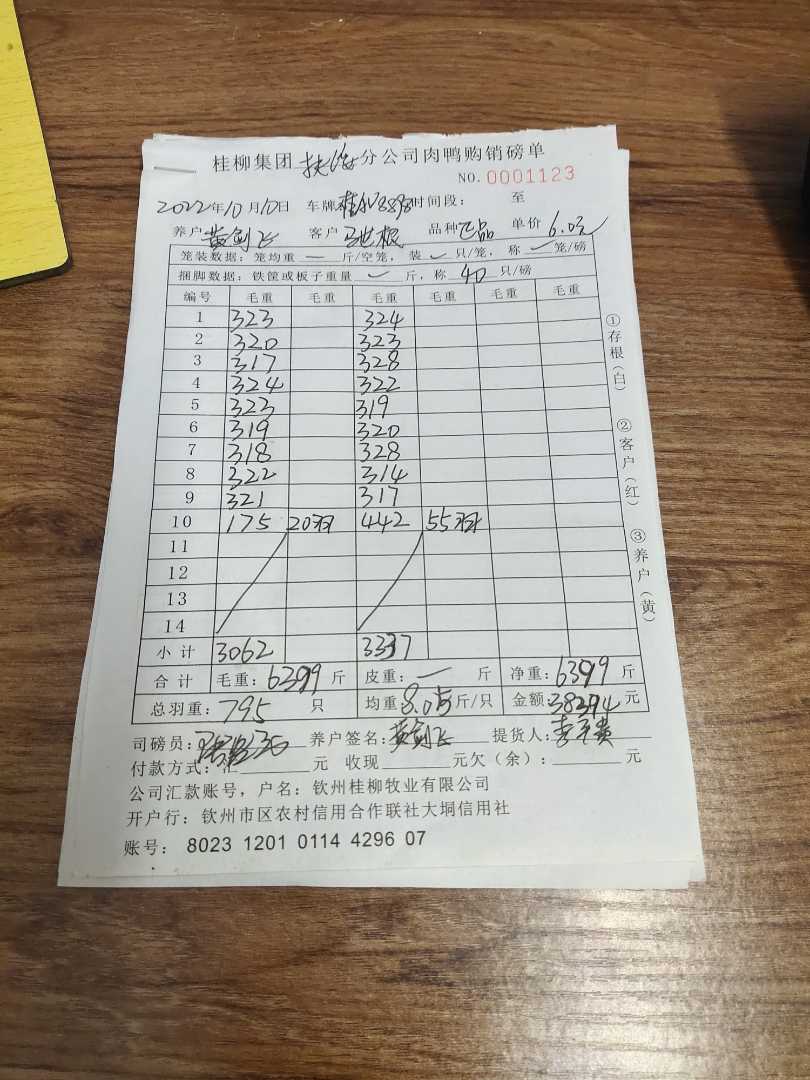 桂柳集团 扶绥 分公司肉鸭购销磅单
NO. 0001123
2022年10月10日 车牌 时间段： 至
养户 黄剑飞 客户 品种 正品 单价 6.0元
笼装数据：笼均重 — 斤/空笼，装 ✓ 只/笼，称 ✓ 笼/磅
捆脚数据：铁筐或板子重量 ✓ 斤，称 40 只/磅
编号 毛重 毛重 毛重 毛重 毛重 毛重
1 323 324
2 320 323
3 317 328
4 324 322
5 323 319
6 319 320
7 318 328
8 322 314
9 321 317
10 175 20羽 442 55羽
11
12
13
14
小计 3062 3337
合计 毛重：6399 斤 皮重：— 斤 净重：6399 斤
总羽重：795 只 均重 8.05 斤/只 金额：38394 元
司磅员： 养户签名：黄剑飞 提货人：
付款方式：汇 元 收现 元欠（余）： 元
公司汇款账号，户名：钦州桂柳牧业有限公司
开户行：钦州市区农村信用合作联社大垌信用社
账号： 8023 1201 0114 4296 07
①存根（白） ②客户（红） ③养户（黄）